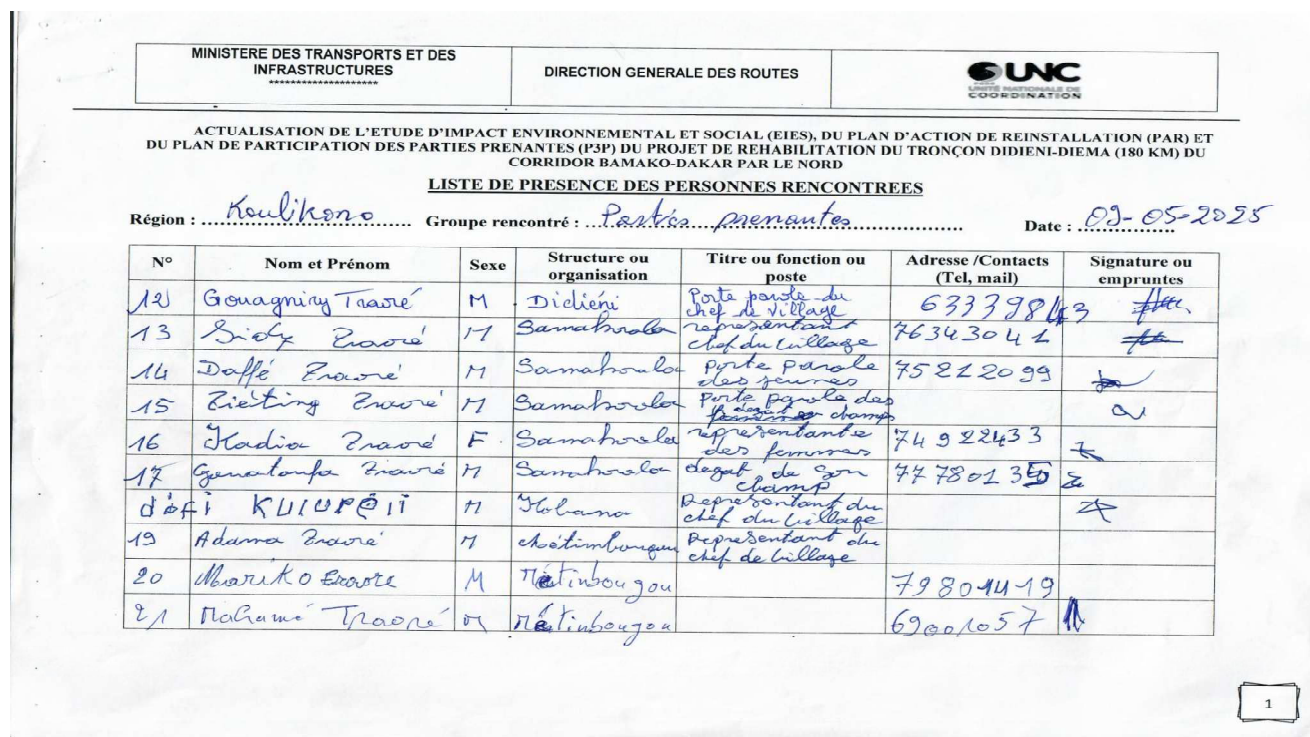 MINISTERE DES TRANSPORTS ET DES
INFRASTRUCTURES
********************
DIRECTION GENERALE DES ROUTES
UNC
UNITÉ NATIONALE DE
COORDINATION
ACTUALISATION DE L'ETUDE D'IMPACT ENVIRONNEMENTAL ET SOCIAL (EIES), DU PLAN D'ACTION DE REINSTALLATION (PAR) ET
DU PLAN DE PARTICIPATION DES PARTIES PRENANTES (P3P) DU PROJET DE REHABILITATION DU TRONÇON DIDIENI-DIEMA (180 KM) DU
CORRIDOR BAMAKO-DAKAR PAR LE NORD
LISTE DE PRESENCE DES PERSONNES RENCONTREES
Région : Koulikoro Groupe rencontré : Parties prenantes Date : 09-05-2025
N° Nom et Prénom Sexe Structure ou organisation Titre ou fonction ou poste Adresse /Contacts (Tel, mail) Signature ou empruntes
12 Traoré M Didiéni Porte parole du chef de village 63339843
13 Sidy Traoré M representant chef du village 76343041
14 Daffé Traoré M porte parole des jeunes 75212099
15 Traoré M porte parole des champs
16 Hadia Traoré F représentante des femmes 74922433
17 Traoré M degat de son champ
M Representant du chef du village
19 Adama Traoré M Representant du chef de village
20 Mariko M 79801419
21 Mahamé Traoré M 69001057
1